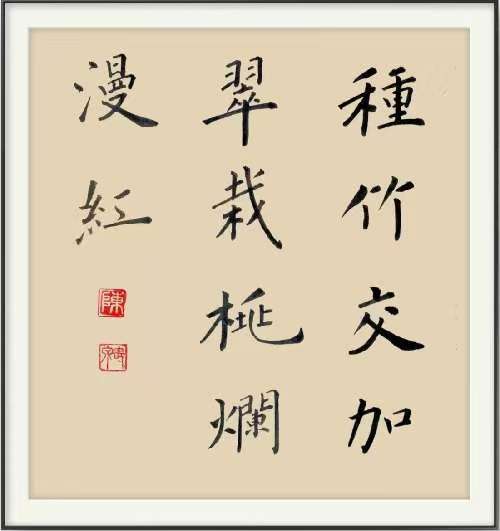 種竹交加
翠栽桃爛
漫紅
陳